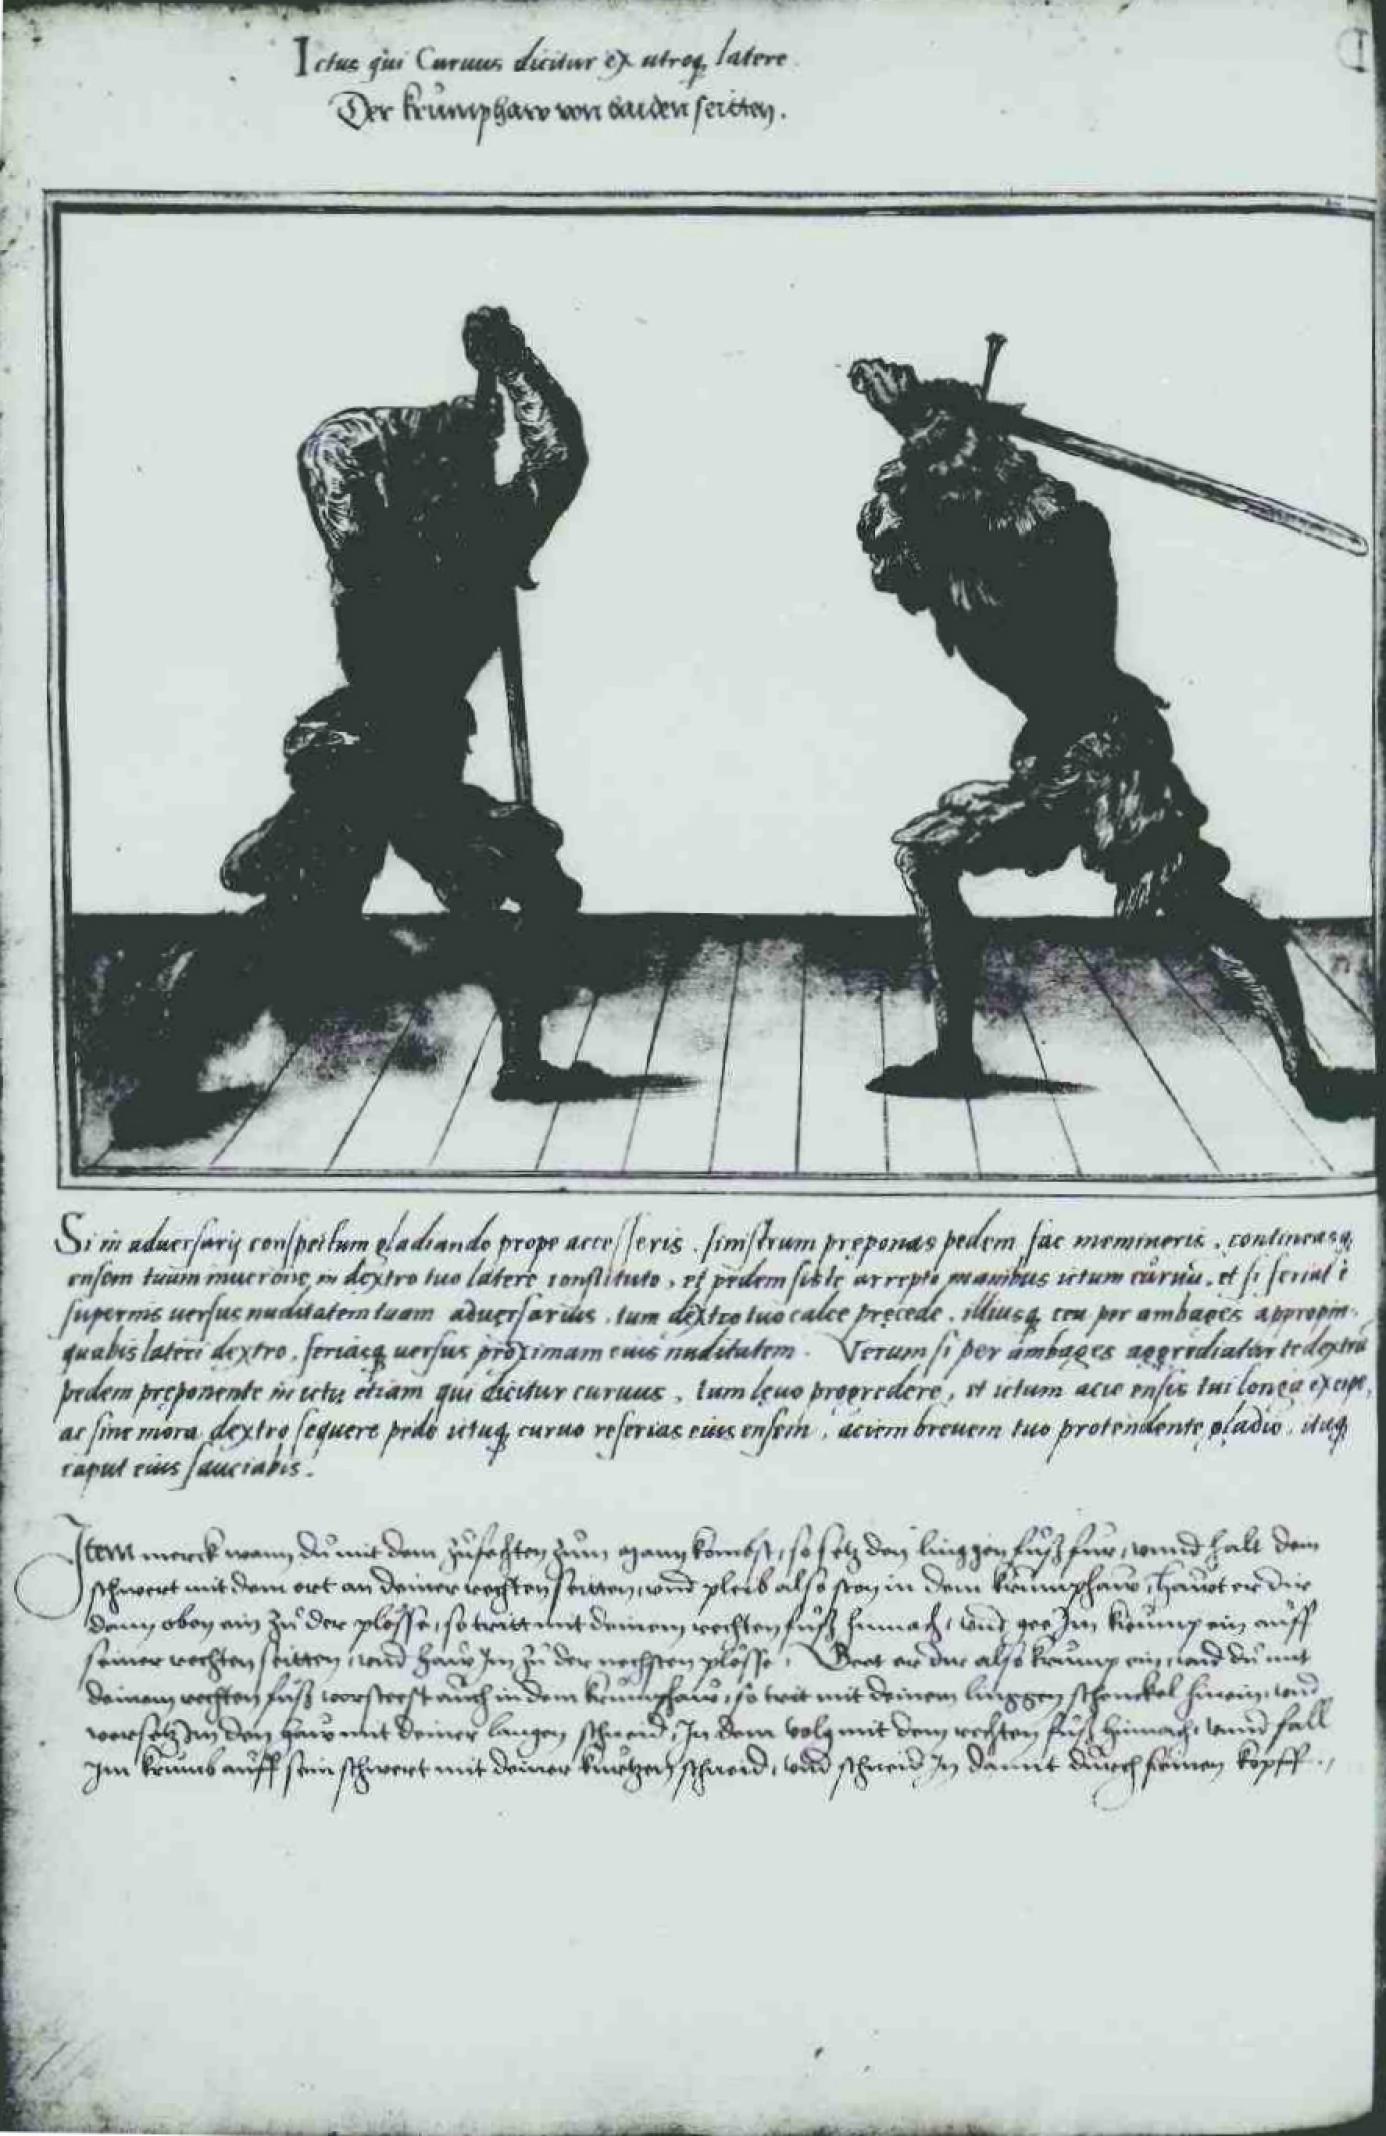 Ictus qui Curuus dicitur ex utroq latere.
Der krumphaw von baiden seitten.
Si in aduersarij conspectum gladiando prope accesseris. sinistrum preponas pedem fac memineris, contineasq
ensem tuum mucrone in dextro tuo latere constituto, et pedem siste arrepto manibus ictum curuũ, et si feriat è
supernis uersus nuditatem tuam aduersarius, tum dextro tuo calce precede, illiusq ceu per ambages appropin-
quabis lateri dextro, feriasq uersus proximam eius nuditatem. Verum si per ambages aggrediatur te dextrũ
pedem preponente in ictu etiam qui dicitur curuus, tum leuo progredere, et ictum acie ensis tui longa excipe,
ac sine mora dextro sequere pede ictuq curuo referias eius ensem, aciem breuem tuo protendente gladio, itaq
caput eius sauciabis.
Item merck wann du mit dem zufechten zum mann kombst, so setz den linggen fuß fur, vnnd halt dein
schwert mit dem ort an deiner rechten seitten, vnd pleib also sten in dem krumphaw, hawt er dir
dann oben ein zu der plösse, so tritt mit deinem rechten fuß hinnach, vnd gee Im krump ein auff
seiner rechten seitten, vnd haw Im zu der nechsten plösse, Geet er dir also krump ein, vnd du mit
deinem rechten fuß vorsteest auch in dem krumphaw, so trit mit deinem linggen schenckel hinein, vnd
versetz Im den haw mit deiner langen schneid, In dem volg mit dem rechten fuß hinnach, vnnd fall
Im krumb auff sein schwert mit deiner kurtzen schneid, vnd schneid In damit durch seinen kopff.